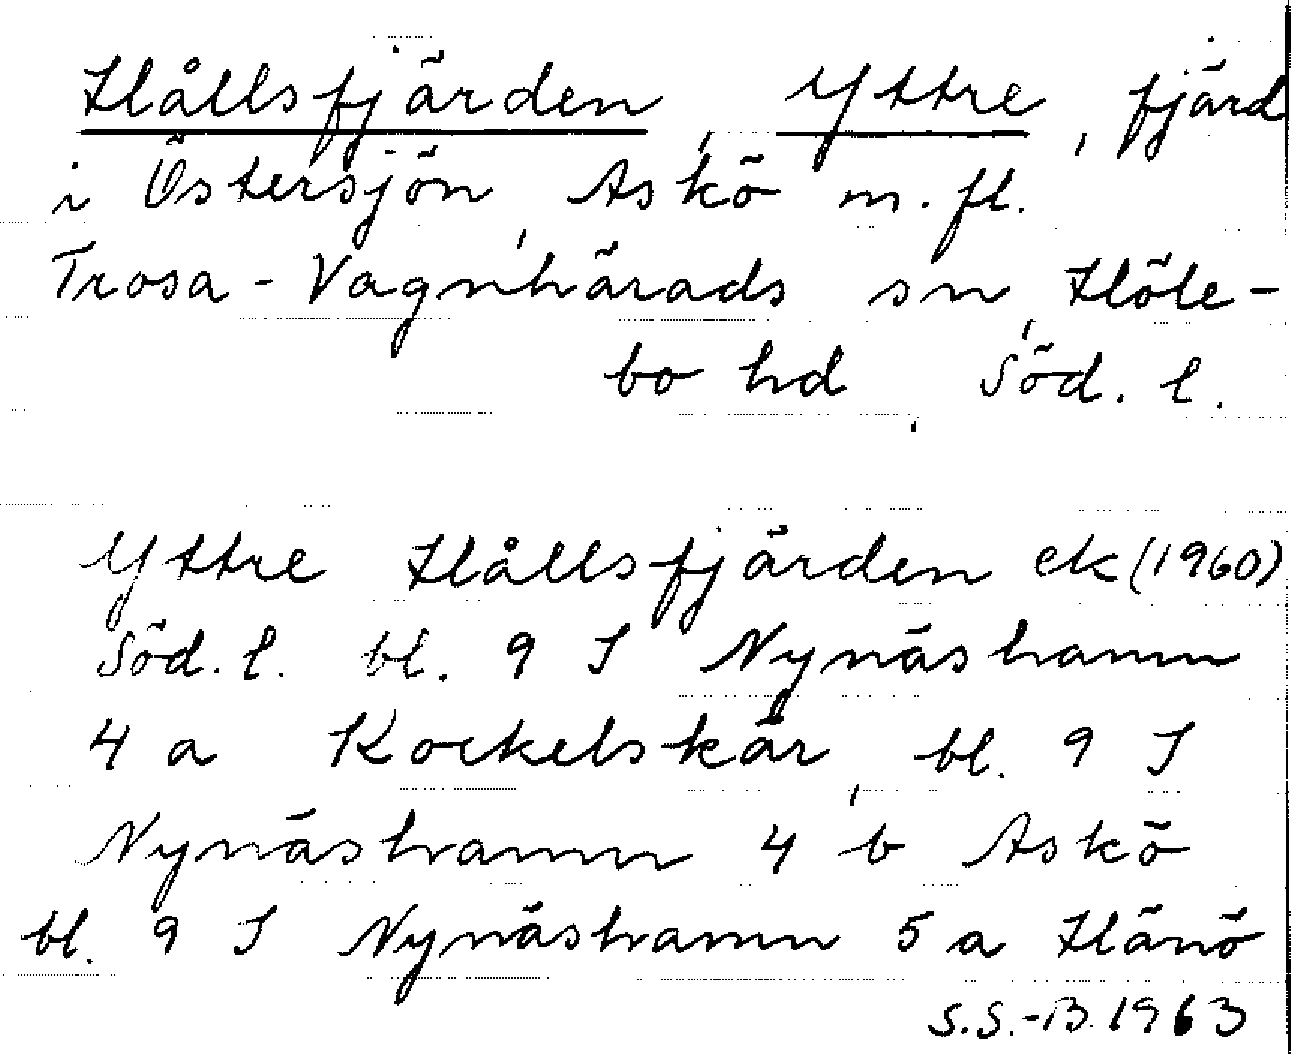 Hållsfjärden, Yttre, fjärd
i Östersjön, Askö m.fl.
Trosa-Vagnhärads sn, Höle-
bo hd, Söd. l.
Yttre Hållsfjärden ek (1960)
Söd. l. bl. 9 I Nynäshamn
4 a Kockelskär, bl. 9 I
Nynäshamn 4 b Askö
bl. 9 I Nynäshamn 5 a Hänö
S.S.-B. 1963